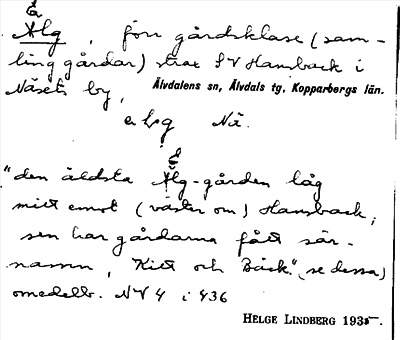 Älg, förr gårdsklase (sam-
ling gårdar) strax SV Hansback i
Näsets by,
Älvdalens sn, Älvdals tg, Kopparbergs län.
Nä.
"den äldsta Älg-gården låg
mitt emot (väster om) Hansback,
sen har gårdarna fått sär-
namn, "Kitt och Bäck." (se dessa)
omedelb. NV 4 i 436
HELGE LINDBERG 1935.